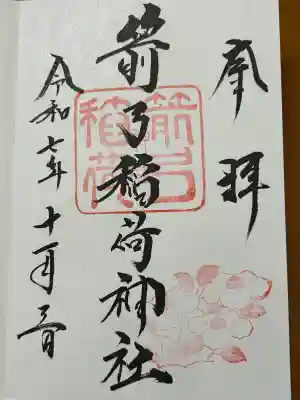 奉拝
箭弓稲荷神社
箭弓稲荷
令和七年十一月三日